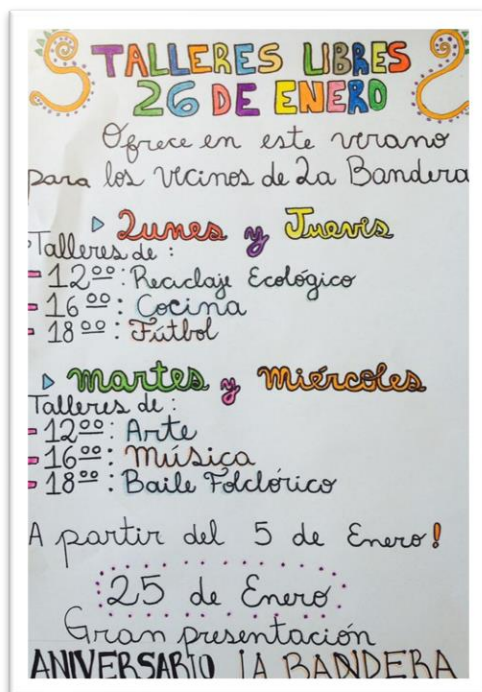 TALLERES LIBRES
26 DE ENERO
Ofrece en este verano
para los vecinos de La Bandera
Lunes y Jueves
Talleres de:
- 12°°: Reciclaje Ecológico
- 16°°: Cocina
- 18°°: Fútbol
Martes y Miércoles
Talleres de:
- 12°°: Arte
- 16°°: Música
- 18°°: Baile Folclórico
A partir del 5 de Enero!
25 de Enero
Gran presentación
ANIVERSARIO LA BANDERA